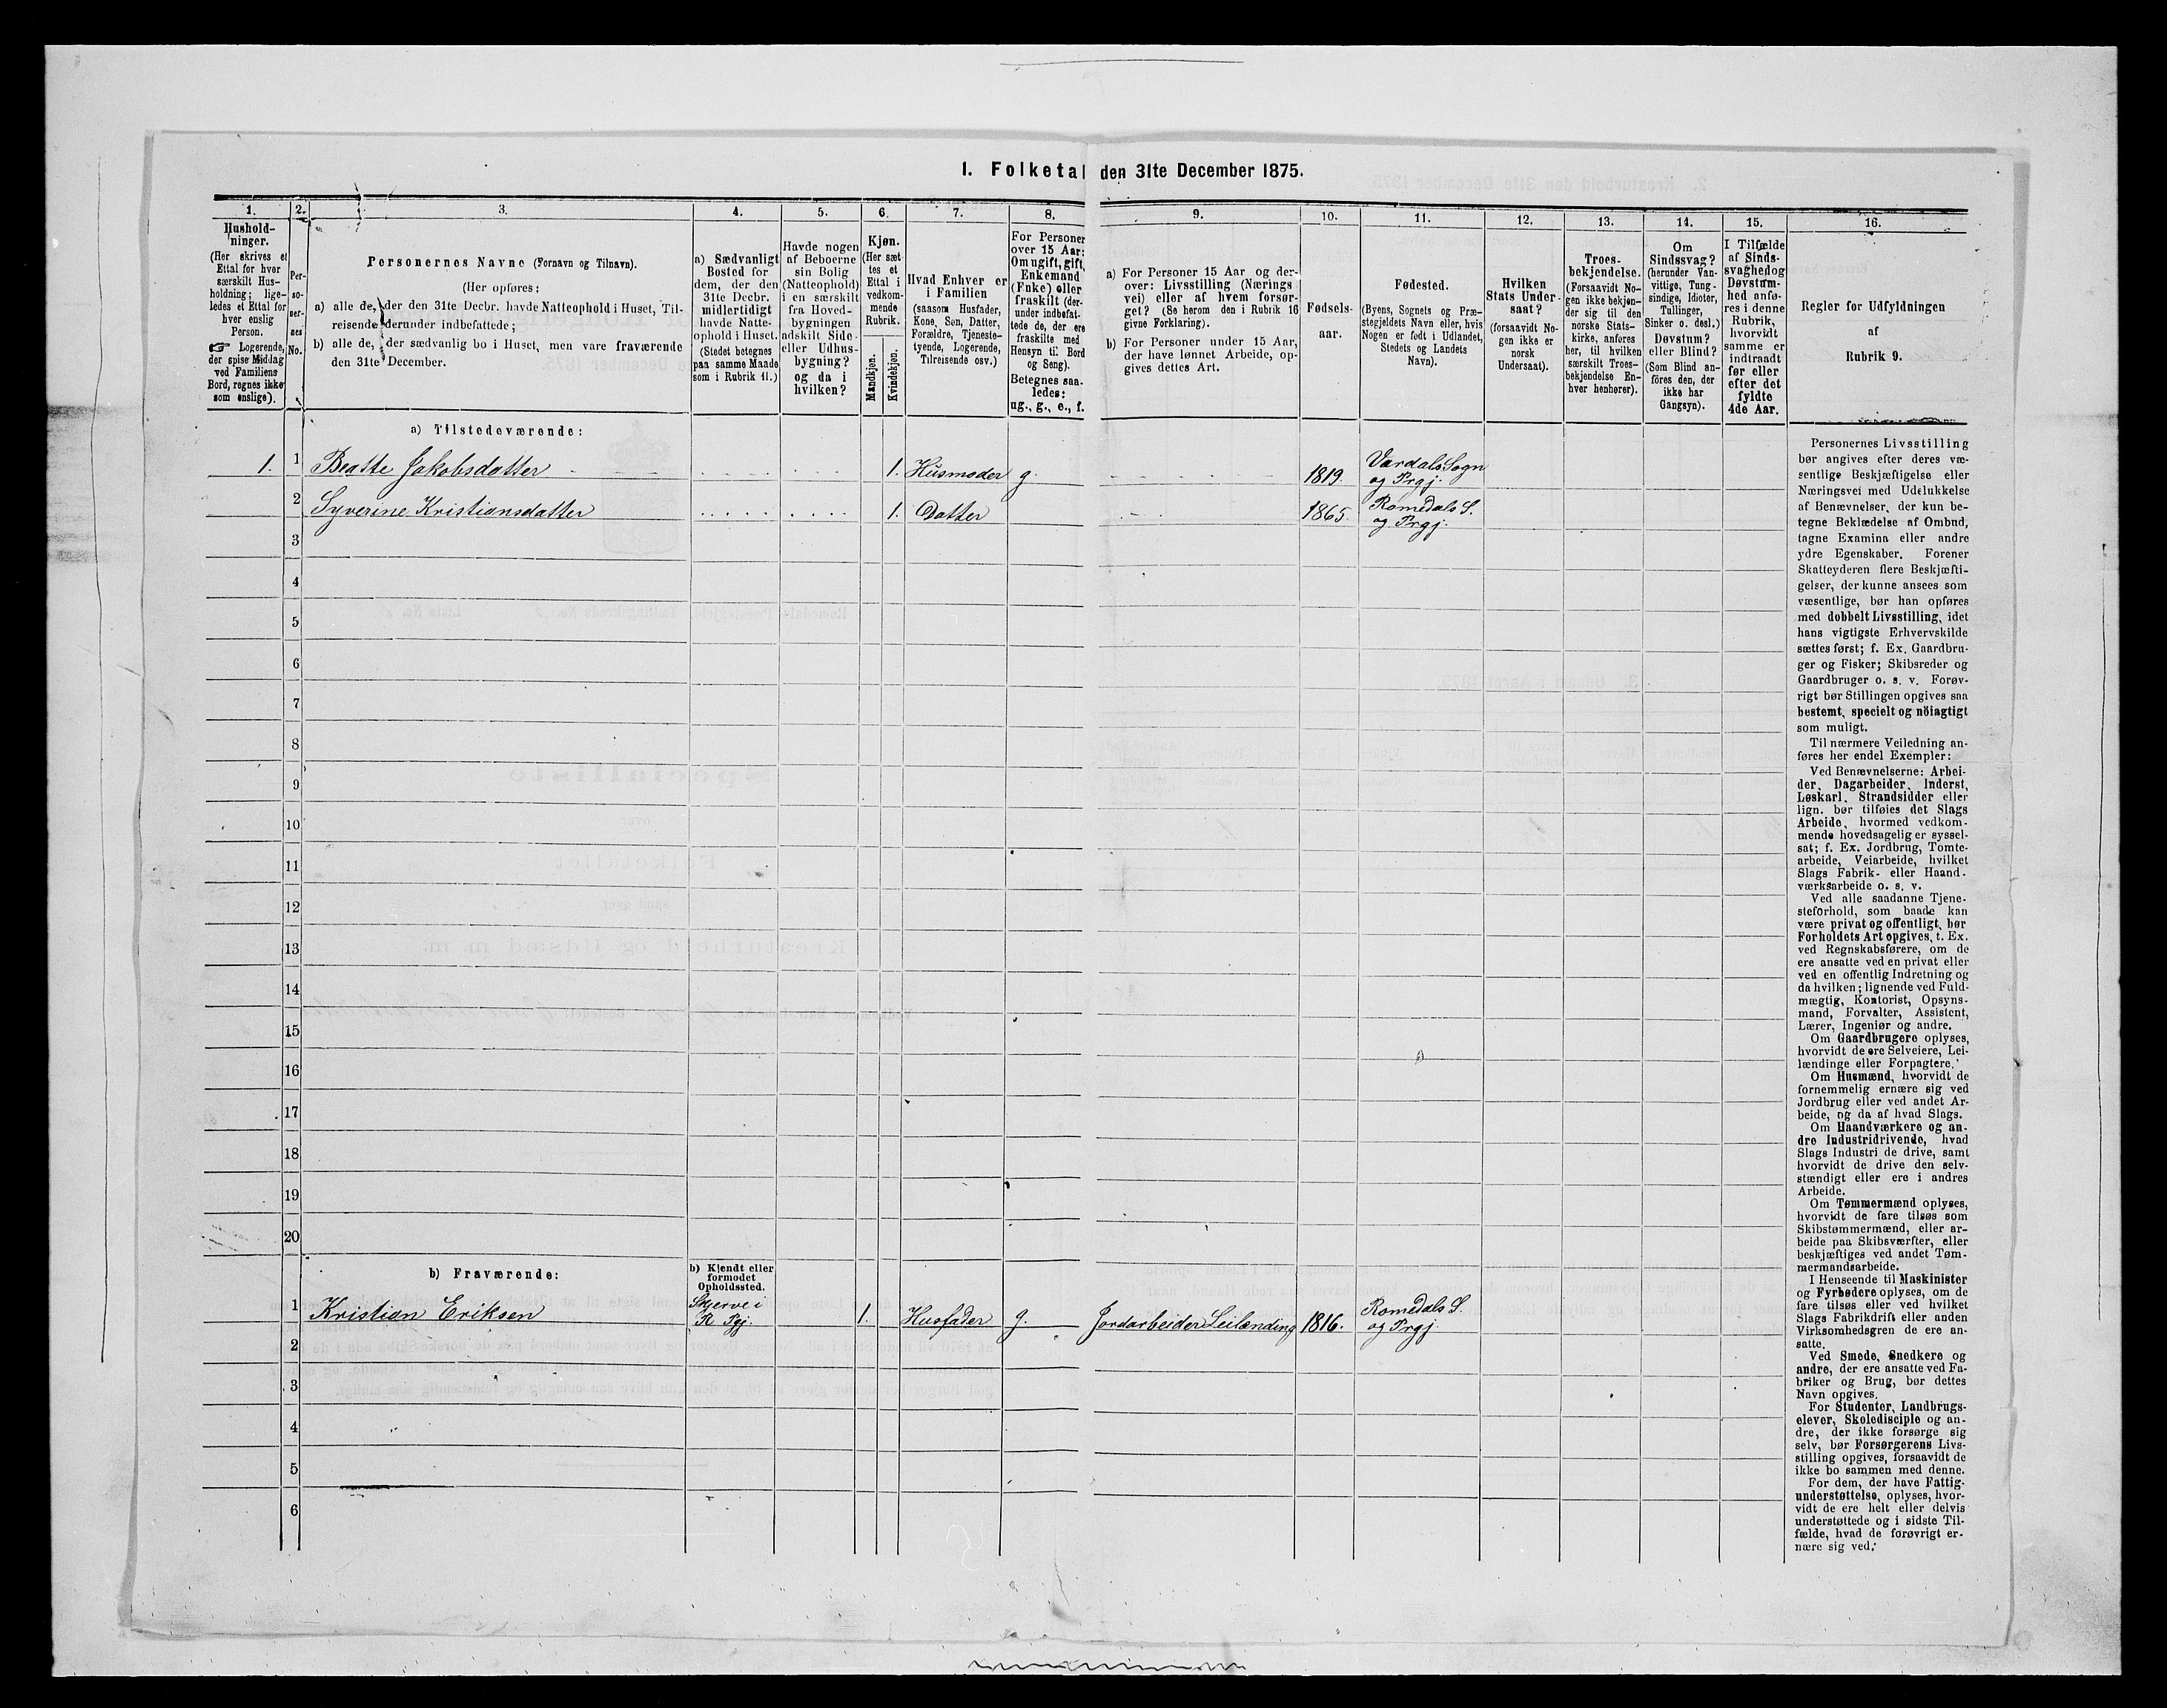 1. Folketal den 31te December 1875.
1.
Hushold-
ninger.
(Her skrives et
Ettal for hver
særskilt Hus-
holdning; lige-
ledes et Ettal for
hver enslig
Person.
☞ Logerende,
der spise Middag
ved Familiens
Bord, regnes ikke
som enslige).
2.
Per-
so-
ner-
nes
No.
3.
Personernes Navne (Fornavn og Tilnavn).
(Her opføres:
a) alle de, der den 31te Decbr. havde Natteophold i Huset, Til-
reisende derunder indbefattede;
b) alle de, der sædvanlig bo i Huset, men vare fraværende
den 31te December.
4.
a) Sædvanligt
Bosted for
dem, der den
31te Decbr.
midlertidigt
havde Natte-
ophold i Huset.
(Stedet betegnes
paa samme Maade
som i Rubrik 11.)
5.
Havde nogen
af Beboerne
sin Bolig
(Natteophold)
i en særskilt
fra Hoved-
bygningen
adskilt Side-
eller Udhus-
bygning?
og da i
hvilken?
6.
Kjøn.
(Her sæt-
tes et
Ettal i
vedkom-
mende
Rubrik.
Mandkjøn.
Kvindekjøn.
7.
Hvad Enhver er
i Familien
(saasom Husfader,
Kone, Søn, Datter,
Forældre, Tjeneste-
tyende, Logerende,
Tilreisende osv.)
8.
For Personer
over 15 Aar:
Om ugift, gift,
Enkemand
(Enke) eller
fraskilt (der-
under indbefat-
tede de, der ere
fraskilte med
Hensyn til Bord
og Seng).
Betegnes saa-
ledes:
ug., g., e., f.
9.
a) For Personer 15 Aar og der-
over: Livsstilling (Nærings
vei) eller af hvem forsør-
get? (Se herom den i Rubrik 16
givne Forklaring).
b) For Personer under 15 Aar,
der have lønnet Arbeide, op-
gives dettes Art.
10.
Fødsels-
aar.
11.
Fødested.
(Byens, Sognets og Præ-
stegjeldets Navn eller, hvis
Nogen er født i Udlandet,
Stedets og Landets
Navn).
12.
Hvilken
Stats Under-
saat?
(forsaavidt No-
gen ikke er
norsk
Undersaat).
13.
Troes-
bekjendelse.
(Forsaavidt No-
gen ikke bekjen-
der sig til den
norske Stats-
kirke, anføres
her, til hvilken
særskilt Troes-
bekjendelse En-
hver henhører).
14.
Om
Sindssvag?
(herunder Van-
vittige, Tung-
sindige, Idioter,
Tullinger,
Sinker o. desl.)
Døvstum?
eller Blind?
(Som Blind an-
föres den, der
ikke har
Gangsyn).
15.
I Tilfælde
af Sinds-
svaghed og
Døvstum-
hed anfø-
res i denne
Rubrik,
hvorvidt
samme er
indtraadt
før eller
efter det
fyldte
4de Aar.
16.
Regler for Udfyldningen
af
Rubrik 9.
a) Tilstedeværende:
1. 1 Beatte Jakobsdatter 1. Husmoder g. 1819. Vardals Sogn
og Prgj.
2 Syverine Kristiansdatter 1. Datter 1865. Romedals S.
og Prgj.
3
4
5
6
7
8
9
10
11
12
13
14
15
16
17
18
19
20
b) Fraværende:
b) Kjendt eller
formodet
Opholdssted.
1 Kristian Eriksen Skjerve i
R. Pgj. 1. Husfader g. Jordarbeider Leilænding 1816. Romedals S.
og Prgj.
2
3
4
5
6
Personernes Livsstilling
bør angives efter deres væ-
sentlige Beskjæftigelse eller
Næringsvei med Udelukkelse
af Benævnelser, der kun be-
tegne Beklædelse af Ombud,
tagne Examina eller andre
ydre Egenskaber. Forener
Skatteyderen flere Beskjæfti-
gelser, der kunne ansees som
væsentlige, bør han opføres
med dobbelt Livsstilling, idet
hans vigtigste Erhvervskilde
sættes først; f. Ex. Gaardbru-
ger og Fisker; Skibsreder og
Gaardbruger o. s. v. Forøv-
rigt bør Stillingen opgives saa
bestemt, specielt og nöiagtigt
som muligt.
Til nærmere Veiledning an-
føres her endel Exempler:
Ved Benævnelserne: Arbei-
der, Dagarbeider, Inderst,
Løskarl, Strandsidder eller
lign. bør tilføies det Slags
Arbeide, hvormed vedkom-
mende hovedsagelig er syssel-
sat; f. Ex. Jordbrug, Tomte-
arbeide, Veiarbeide, hvilket
Slags Fabrik- eller Haand-
værksarbeide o. s. v.
Ved alle saadanne Tjene-
steforhold, som baade kan
være privat og offentligt, bør
Forholdets Art opgives, t. Ex.
ved Regnskabsførere, om de
ere ansatte ved en privat eller
ved en offentlig Indretning og
da hvilken; lignende ved Fuld-
mægtig, Kontorist, Opsyns-
mand, Forvalter, Assistent,
Lærer, Ingeniør og andre.
Om Gaardbrugere oplyses,
hvorvidt de ere Selveiere, Lei-
lændinge eller Forpagtere.
Om Husmænd, hvorvidt de
fornemmelig ernære sig ved
Jordbrug eller ved andet Ar-
beide, og da af hvad Slags.
Om Haandværkere og an-
dre Industridrivende, hvad
Slags Industri de drive, samt
hvorvidt de drive den selv-
stændigt eller ere i andres
Arbeide.
Om Tømmermænd oplyses,
hvorvidt de fare tilsøs som
Skibstømmermænd, eller ar-
beide paa Skibsværfter, eller
beskjæftiges ved andet Tøm-
mermandsarbeide.
I Henseende til Maskinister
og Fyrbødere oplyses, om de
fare tilsøs eller ved hvilket
Slags Fabrikdrift eller anden
Virksomhedsgren de ere an-
satte.
Ved Smede, Snedkere og
andre, der ere ansatte ved Fa-
briker og Brug, bør dettes
Navn opgives.
For Studenter, Landbrugs-
elever, Skoledisciple og an-
dre, der ikke forsørge sig
selv, bør Forsørgerens Livs-
stilling opgives, forsaavidt de
ikke bo sammen med denne.
For dem, der have Fattig-
understøttelse, oplyses, hvor-
vidt de ere helt eller delvis
understøttede og i sidste Til-
fælde, hvad de forøvrigt er-
nære sig ved.